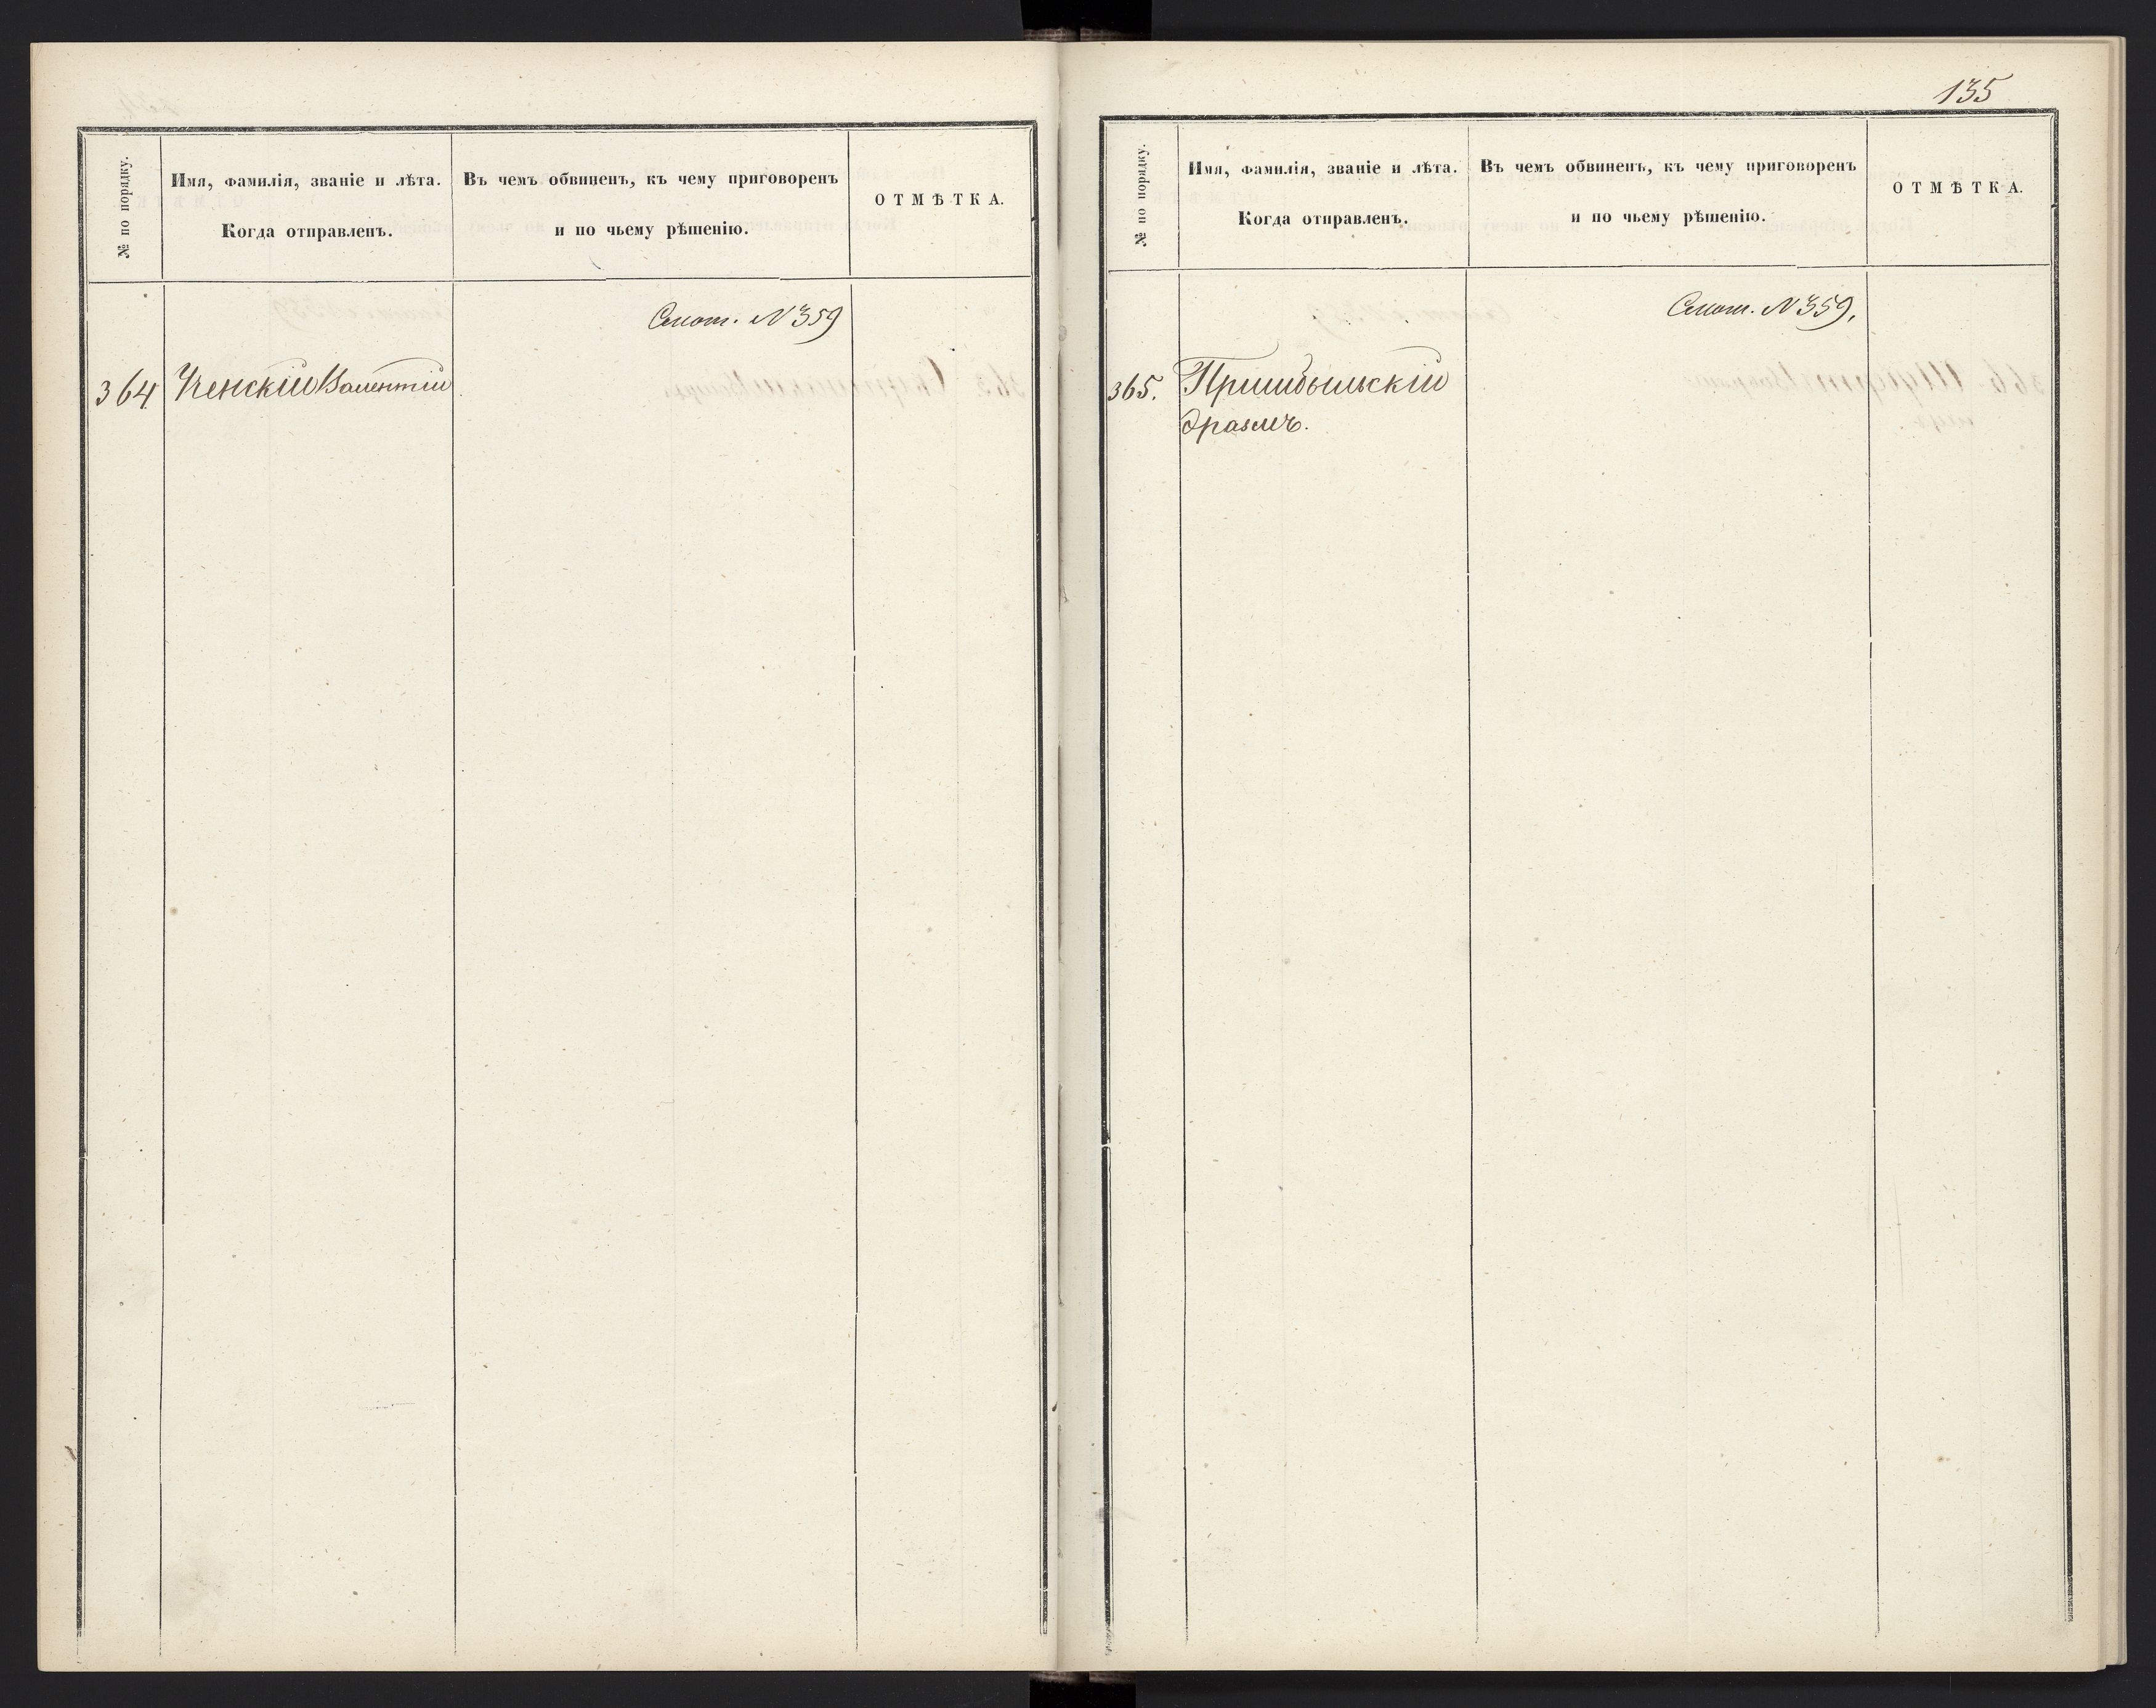 № по порядку.
Имя, фамилія, званіе и лѣта.
Когда отправленъ.
Въ чемъ обвиненъ, къ чему приговоренъ
и по чьему рѣшенію.
ОТМѢТКА.
Смот. N 359
364 Ченскій Валентій
135
№ по порядку.
Имя, фамилія, званіе и лѣта.
Когда отправленъ.
Въ чемъ обвиненъ, къ чему приговоренъ
и по чьему рѣшенію.
ОТМѢТКА.
Смот. N 359.
365. Пршибыльскій
Эразмъ.